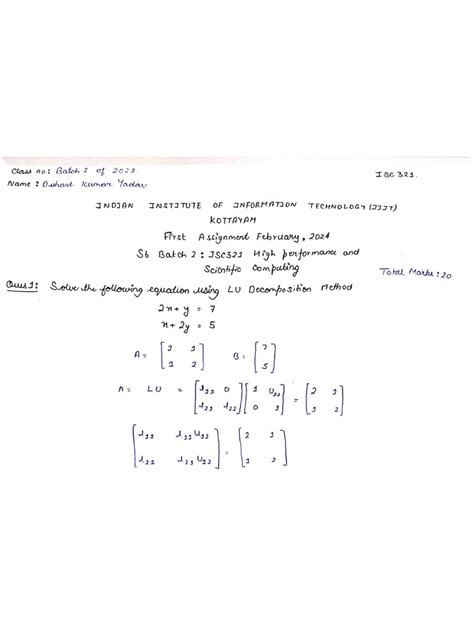 Class no: Batch 2 of 2021
ISC321.
Name: Dishant Kumar Yadav
INDIAN INSTITUTE OF INFORMATION TECHNOLOGY (IIIT)
KOTTAYAM
First Assignment February, 2024
S6 Batch 2: ISC321 High performance and
Scientific Computing
Total Marks: 20
Ques 1: Solve the following equation using LU Decomposition Method
2x + y = 7
x + 2y = 5
A = [2 1] B = [7]
[1 2] [5]
A = LU = [l11 0] [1 U12] = [2 1]
[l21 l22] [0 1] [1 2]
[l11 l11U12] = [2 1]
[l21 l21U12] [1 2]